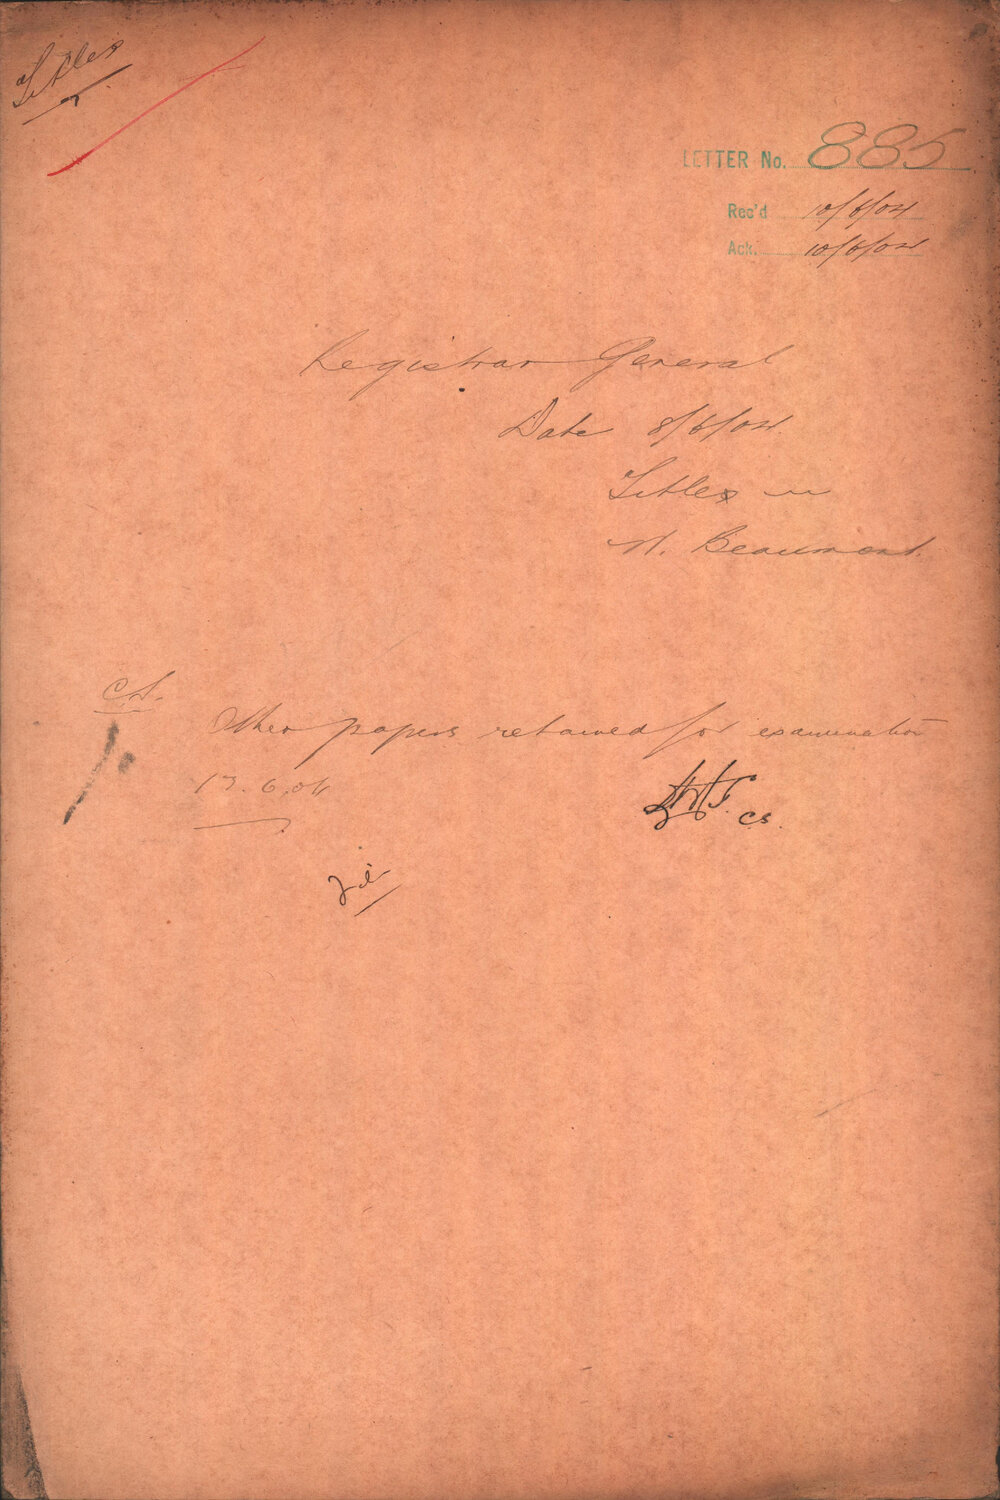 Titles
LETTER No. 885
Rec'd 10/6/04
Ack. 10/6/04
Registrar General
Date 8/6/04.
Titles in
N. Beaumont.
C.S.
Other papers retained for examination
17.6.04
C.S.
File